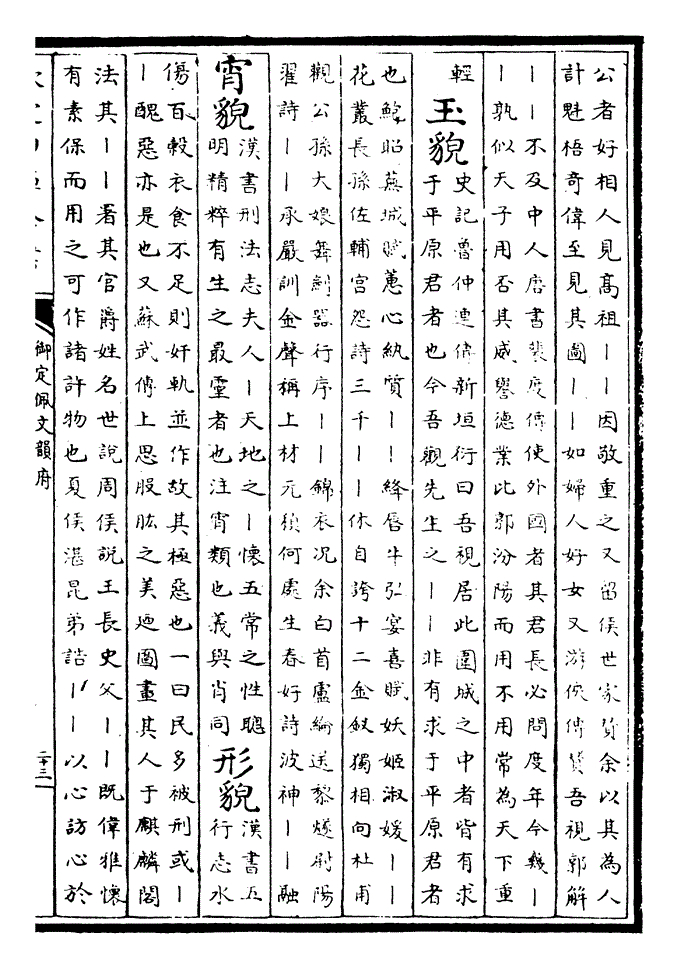 公者好相人見高祖丨丨因敬重之又留侯世家贊余以其為人
計魁梧奇偉至見其圖丨丨如婦人好女又游俠傳贊吾視郭解
丨丨不及中人唐書裴度傳使外國者其君長必問度年今幾丨
丨孰似天子用否其威譽德業比郭汾陽而用不用常為天下重
輕
玉貌
史記魯仲連傳新垣衍曰吾視居此圍城之中者皆有求
于平原君者也今吾觀先生之丨丨非有求于平原君者
也鮑昭蕪城賦蕙心紈質丨丨絳唇牛弘宴喜賦妖姬淑媛丨丨
花叢長孫佐輔宫怨詩三千丨丨休自誇十二金釵獨相向杜甫
觀公孫大娘舞劍器行序丨丨錦衣况余白首盧綸送黎燧尉陽
濯詩丨丨承嚴訓金聲稱上材元稹何處生春好詩波神丨丨融
宵貌
漢書刑法志夫人丨天地之丨懷五常之性聰
明精粹有生之最靈者也注宵類也義與肖同
形貌
漢書五
行志水
傷百榖衣食不足則奸軌並作故其極惡也一曰民多被刑或丨
丨醜惡亦是也又蘇武傳上思股肱之美迺圖畫其人于麒麟閣
法其丨丨署其官爵姓名世說周侯說王長史父丨丨既偉雅懷
有素保而用之可作諸許物也夏侯湛昆弟誥丨丨以心訪心於
御定佩文韻府
二十三